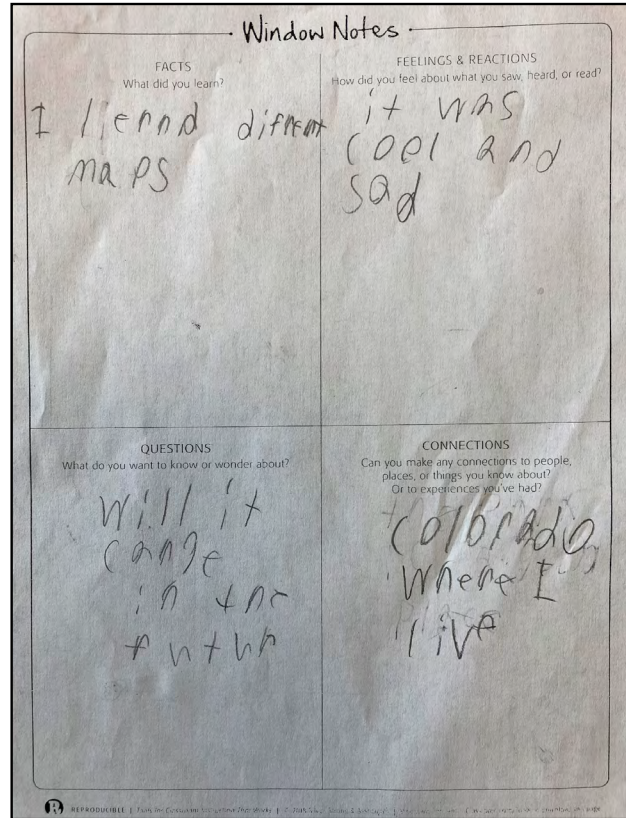 Window Notes
FACTS
What did you learn?
I liennd difrent
maps
FEELINGS & REACTIONS
How did you feel about what you saw, heard, or read?
it was
cool and
sad
QUESTIONS
What do you want to know or wonder about?
Will it
cange
in the
futur
CONNECTIONS
Can you make any connections to people,
places, or things you know about?
Or to experiences you've had?
Colorado
Where I
live
R REPRODUCIBLE